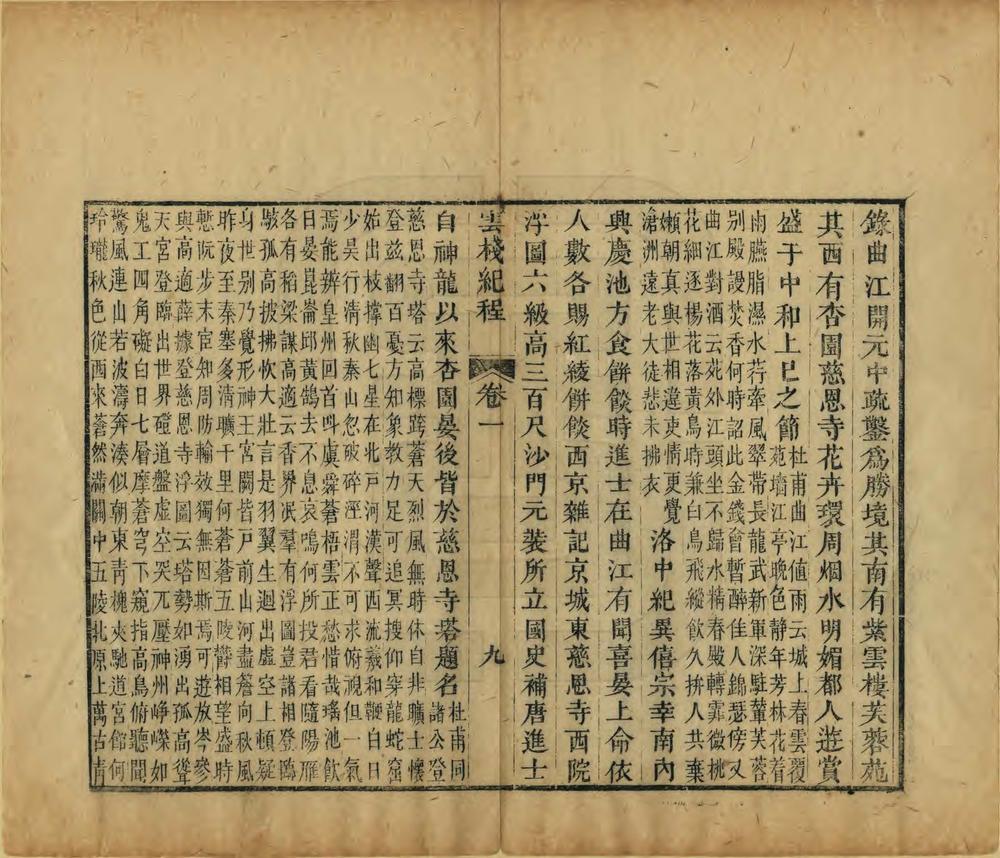 錄曲江開元中疏鑿爲勝境其南有紫雲樓芙蓉苑
其西有杏園慈恩寺花卉環周烟水明媚都人遊賞
盛于中和上巳之節
杜甫曲江值雨云城上春雲覆
苑墻江亭晚色靜年芳林花着
雨臙脂濕水荇牽風翠帶長龍武新軍深駐輦芙蓉
别殿謾焚香何時詔此金錢會暫醉佳人錦瑟傍又
曲江對酒云苑外江頭坐不歸水精春殿轉霏微桃
花細逐楊花落黃鳥時兼白鳥飛縱飲久拚人共棄
嬾朝真與世相違吏情更覺
滄洲遠老大徒悲未拂衣
洛中紀異僖宗幸南内
興慶池方食餅餤時進士在曲江有聞喜宴上命依
人數各賜紅綾餅餤西京雜記京城東慈恩寺西院
浮圖六級高三百尺沙門元裝所立國史補唐進士
雲棧紀程 卷一 九
自神龍以來杏園宴後皆於慈恩寺塔題名
杜甫同
諸公登
慈恩寺塔云高標跨蒼天烈風無時休自非曠士懷
登兹翻百憂方知象教力足可追冥搜仰穿龍蛇窟
始出枝撐幽七星在北戶河漢聲西流羲和鞭白日
少昊行清秋秦山忽破碎涇渭不可求俯視但一氣
焉能辨皇州回首叫虞舜蒼梧雲正愁惜哉瑤池飲
日晏崑崙邱黃鵠去不息哀鳴何所投君看隨陽雁
各有稻粱謀高適云香界泯羣有浮圖豈諸相登臨
駭孤高披拂忻大壯言是羽翼生迥出虛空上頓疑
身世别乃覺形神王宮闕皆戶前山河盡簷向秋風
昨夜至秦塞多清曠千里何蒼蒼五陵鬱相望盛時
慙阮步末宦知周防輸效獨無因斯焉可遊放岑參
與高適薛據登慈恩寺浮圖云塔勢如湧出孤高聳
天宮登臨出世界磴道盤虛空突兀壓神州崢嶸如
鬼工四角礙白日七層摩蒼穹下窺指高鳥俯聽聞
驚風連山若波濤奔湊似朝東青槐夾馳道宮館何
玲瓏秋色從西來蒼然滿關中五陵北原上萬古青